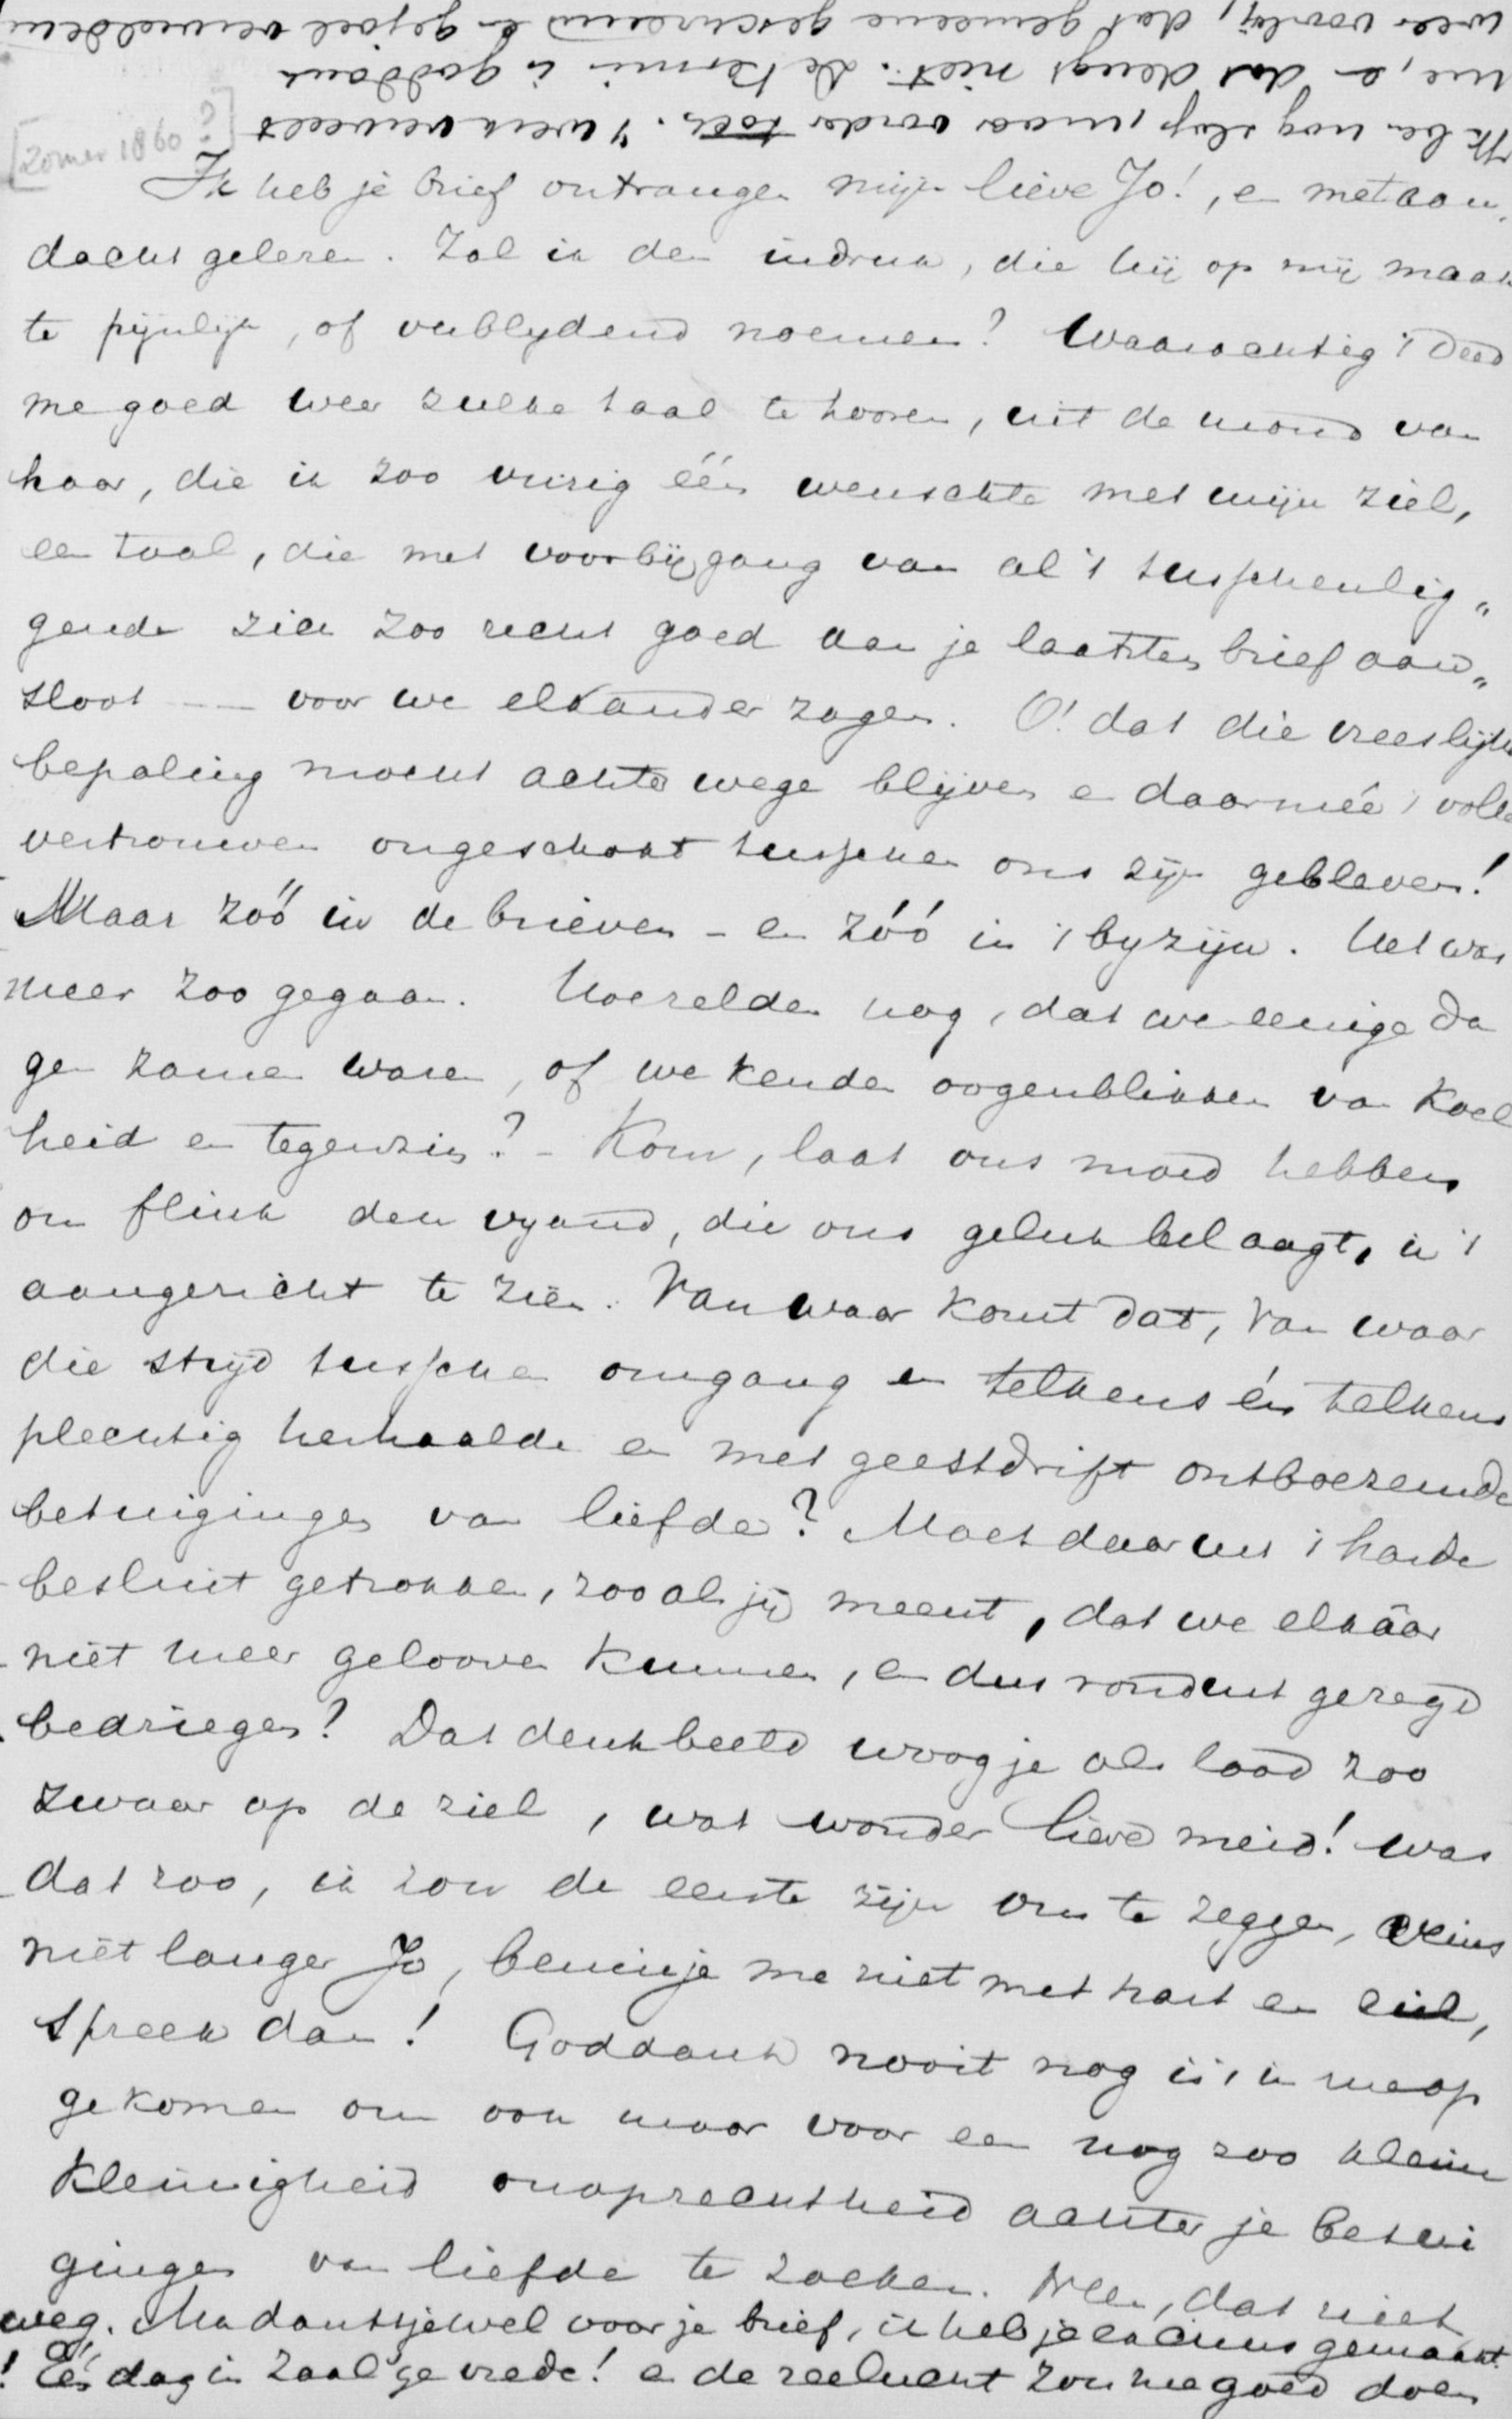 Ik ben nog slap, maar verder toch. 't Werk verveelt
me, en dat deugt niet. De kermis is goddank
weer voorbij, dat gemeene geschreeuw en gejoel verveelden
[Zomer 1860?]
Ik heb je brief ontvangen mijn lieve Jo!, en met aan„
dacht gelezen. Zal ik den indruk, die hij op mij maakt
te pijnlijk, of verblydend noemen? Waarachtig 't deed
me goed weer zulke taal te hooren, uit de mond van
haar, die ik zoo vurig één wenschte met mijn ziel,
een taal, die met voorbijgang van al 't tusschenlig„
gende zich zoo recht goed aan je laatsten brief aan„
sloot -- voor we elkander zagen. O! dat die vreeslijke
bepaling mocht achterwege blijven en daarmeê 't volle
vertrouwen ongeschokt tusschen ons zijn gebleven!
Maar zóó in de brieven - en zóó in 't byzijn. Het was
weer zoo gegaan. Hoe zelden nog, dat we eenige da
gen zamen waren, of we kenden oogenblikken van koel
heid en tegenzin? - Kom, laat ons moed hebben
om flink den vyand, die ons geluk belaagt, in 't
aangezicht te zien. Van waar komt dat, van waar
die strijd tusschen omgang en telkens én telkens
plechtig herhaalde en met geestdrift ontboezemde
betuigingen van liefde? Moet daar uit 't harde
besluit getrokken, zooals jij meent, dat we elkâar
niet meer gelooven kunnen, en dus ronduit gezegd
bedriegen? Dat denkbeeld woog je als lood zoo
zwaar op de ziel, wat wonder lieve meid! was
dat zoo, ik zou de eerste zijn om te zeggen, veins
niet langer Jo, bemin je me niet met hart en ziel,
spreek dan! Goddank nooit nog is 't in me op
gekomen om ook maar voor een nog zoo kleine
kleinigheid onoprechtheid achter je betui
gingen van liefde te zoeken. Neen, dat niet
weg. Ma dankt je wel voor je brief, ik heb je excuus gemaakt.
! Eén dag in Zaal'ge vrede! en de zeelucht zou me goed doen